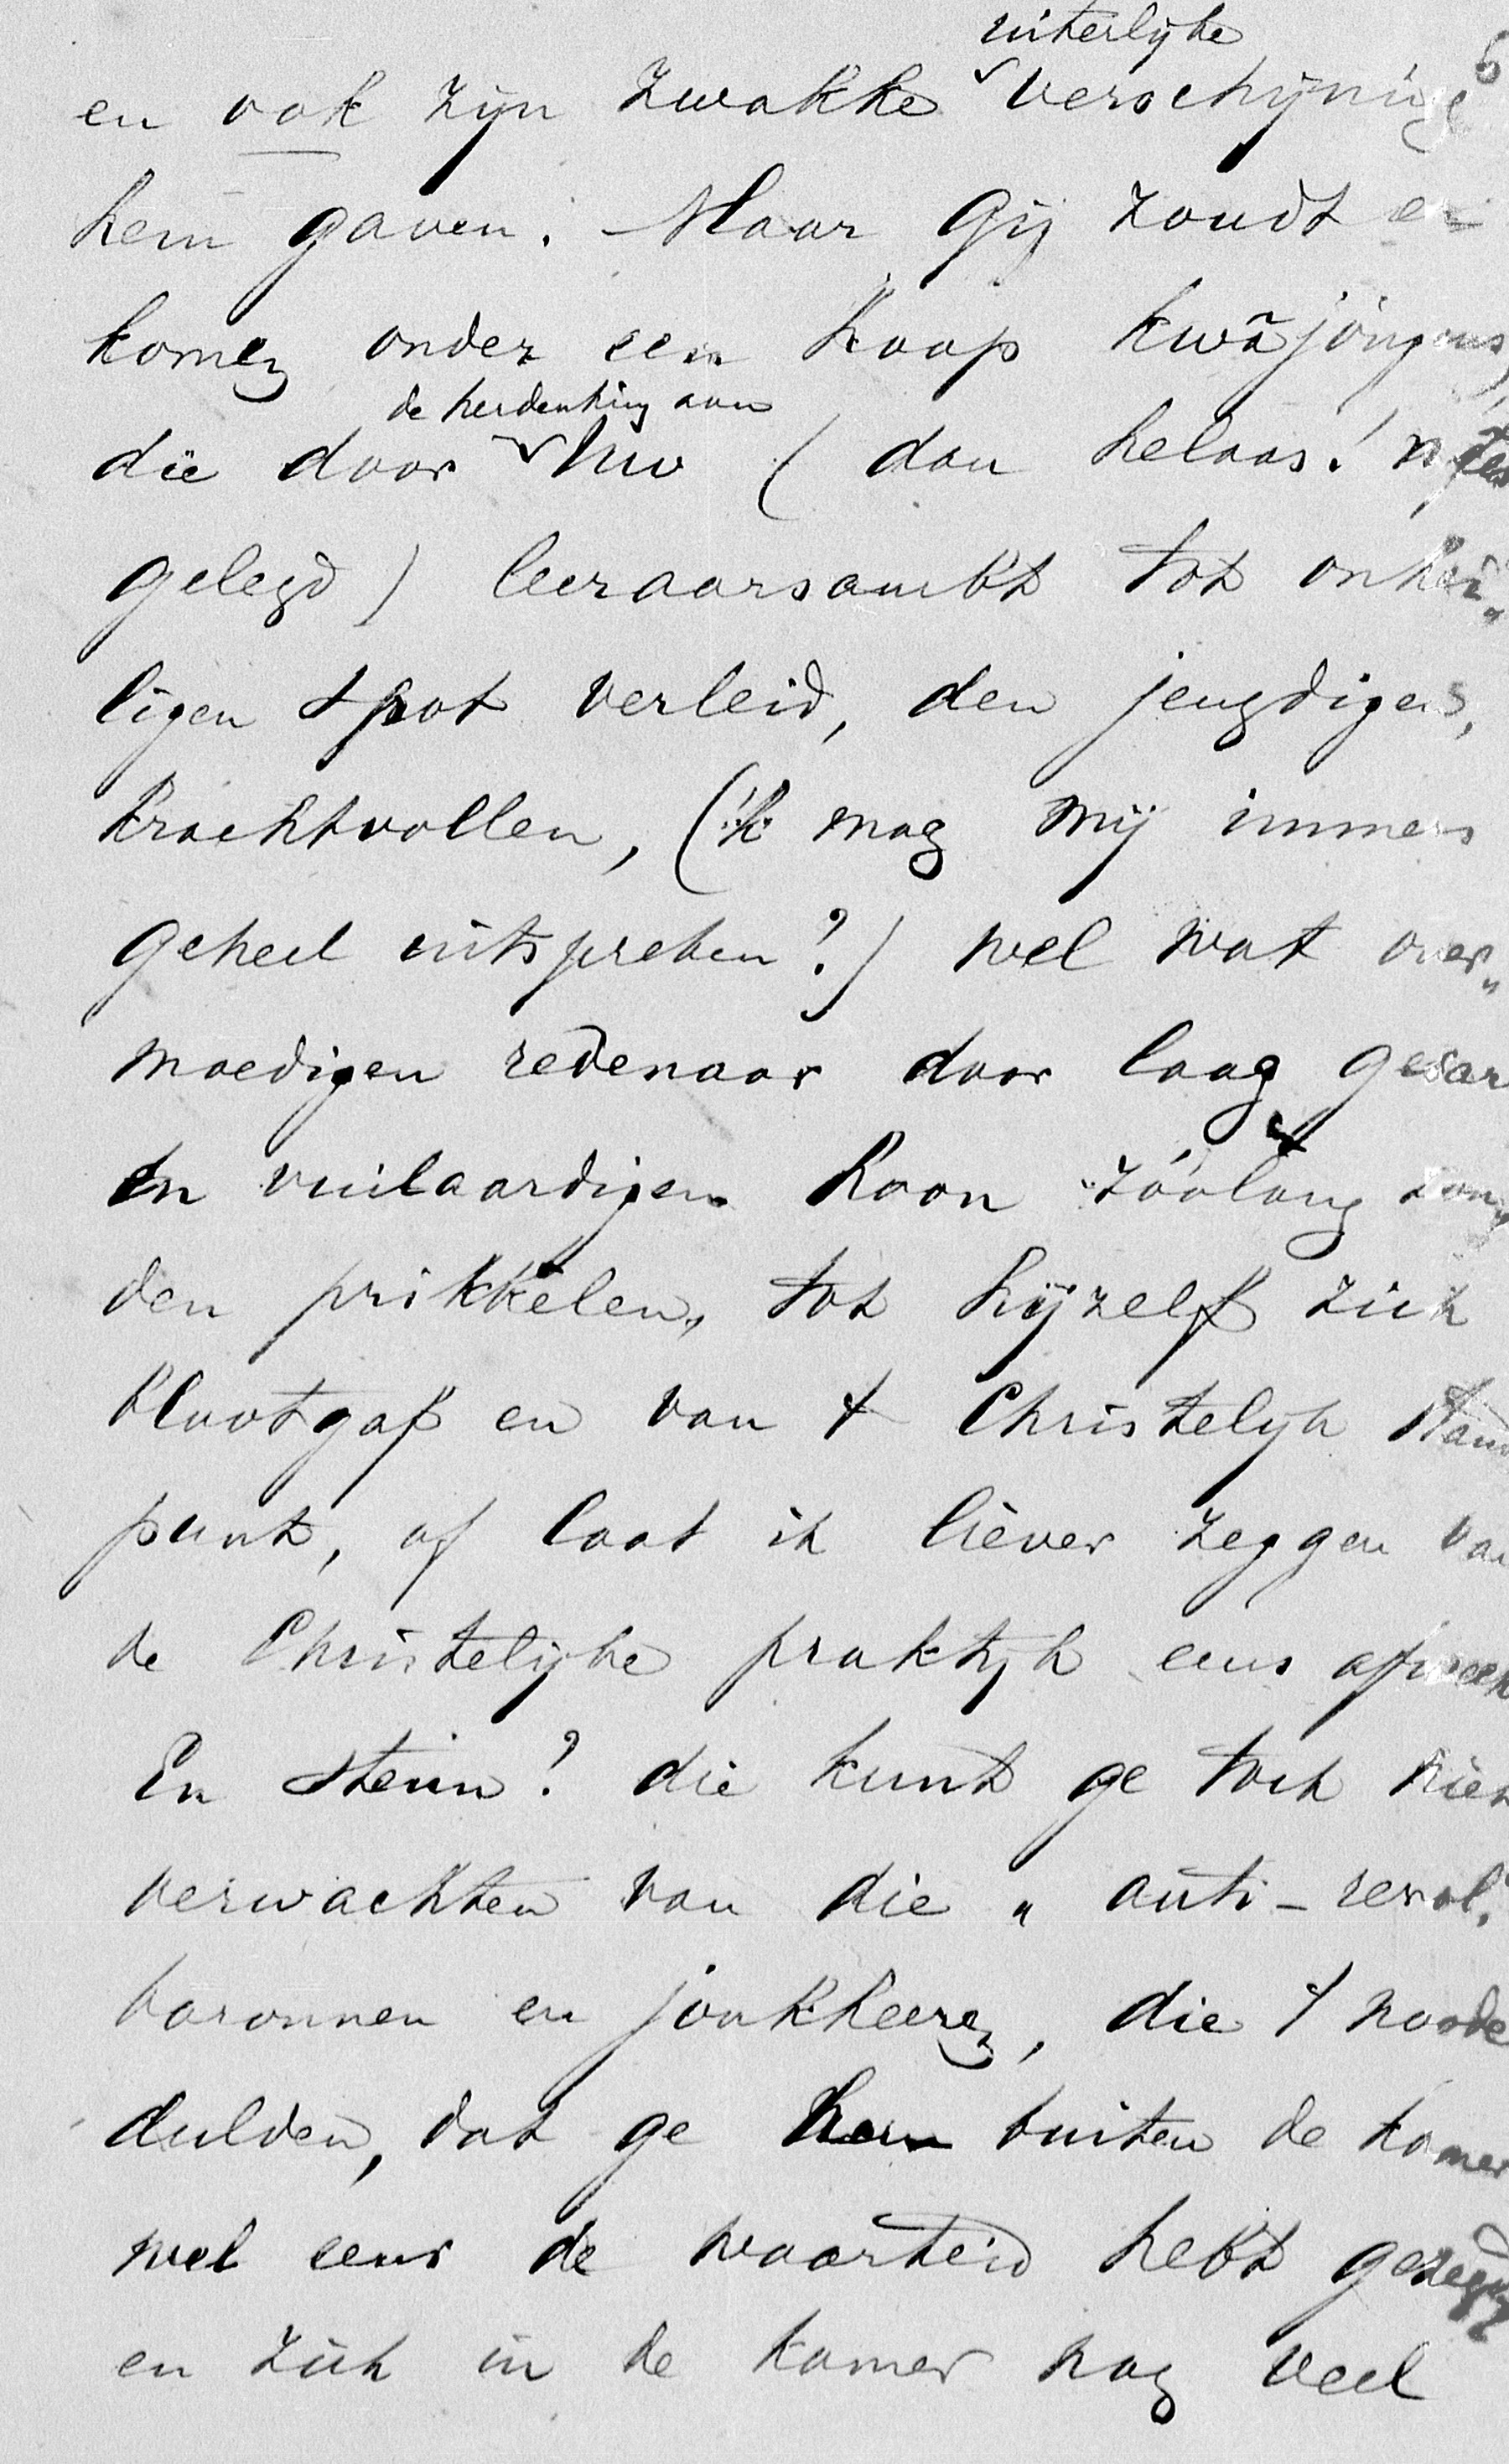 uiterlijke
en ook zijn zwakke verschijning
hem gaven. Maar Gij zoudt er
komen onder een hoop kwâjongens,
de herdenking aan
die door Uw (dan helaas! neer
gelegd) leeraarsambt tot onhei„
ligen spot verleid, den jeugdigen,
krachtvollen, ('k mag mij immers
geheel uitspreken?) wel wat over„
moedigen redenaar door laag gesar
en vuilaardigen hoon zóólang zou„
den prikkelen, tot hijzelf zich
blootgaf en van 't Christelijk stand
punt, of laat ik liever zeggen van
de Christelijke praktijk eens afweek
En steun? die kunt ge toch niet
verwachten van die „anti-revol."
baronnen en jonkheeren, die 't noode
dulden, dat ge hem buiten de kamer
wel eens de waarheid hebt gezegd
en zich in de kamer nog veel